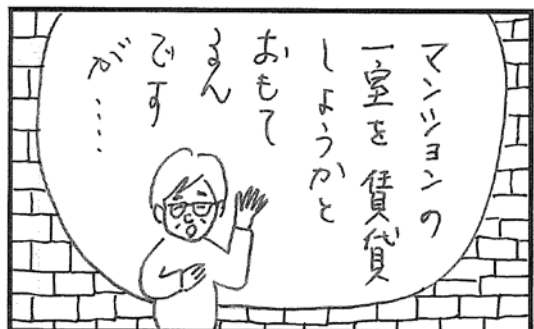 マンションの
一室を賃貸
しようかと
おもて
るん
です
が・・・・